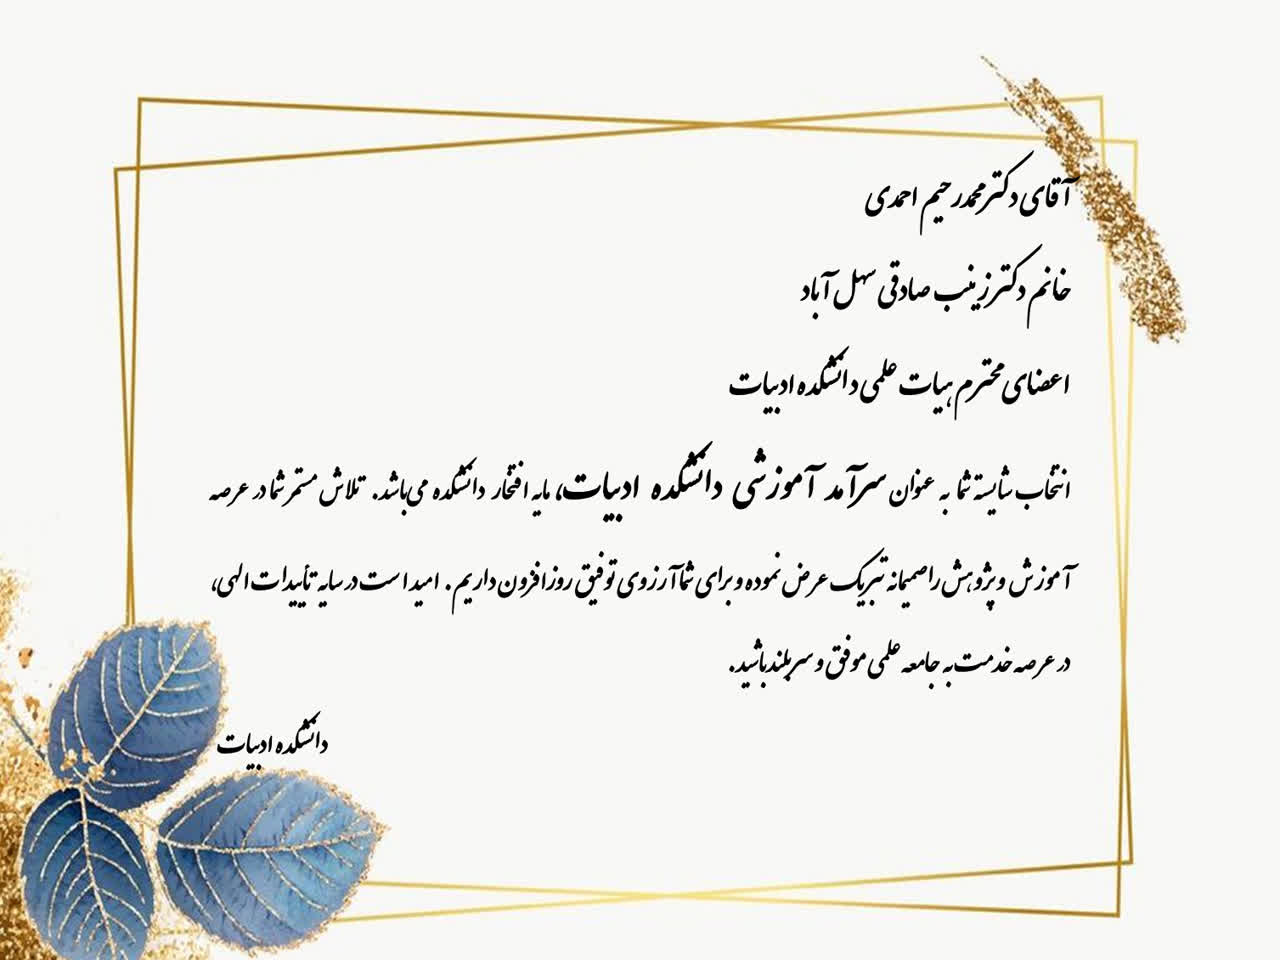 آقای دکتر محمدرحیم احمدی
خانم دکتر زینب صادقی سهل آباد
اعضای محترم هیات علمی دانشکده ادبیات
انتخاب شایسته شما به عنوان سرآمد آموزشی دانشکده ادبیات، مایه افتخار دانشکده می‌باشد. تلاش مستمر شما در عرصه
آموزش و پژوهش را صمیمانه تبریک عرض نموده و برای شما آرزوی توفیق روزافزون داریم. امید است در سایه تأییدات الهی،
در عرصه خدمت به جامعه علمی موفق و سربلند باشید.
دانشکده ادبیات